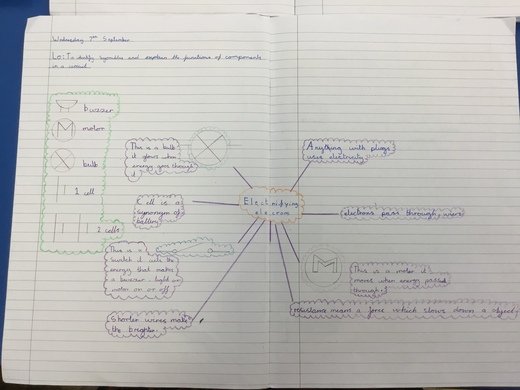 Wednesday 7th September
Lo: To identify symbols and explain the functions of components
in a circuit.
buzzer
M
motor
bulb
1 cell
2 cells
This is a bulb
it glows when
energy goes through
it
K cell is a
synonym of
battery
This is a
switch it lets the
energy that makes
a buzzer, light or
motor on or off
Shorter wires make
the brighter.
Electrifying
electrons
Anything with plugs
uses electricity
electrons pass through wires
M
This is a motor it
moves when energy passed
through.
resistance means a force which slows down a object